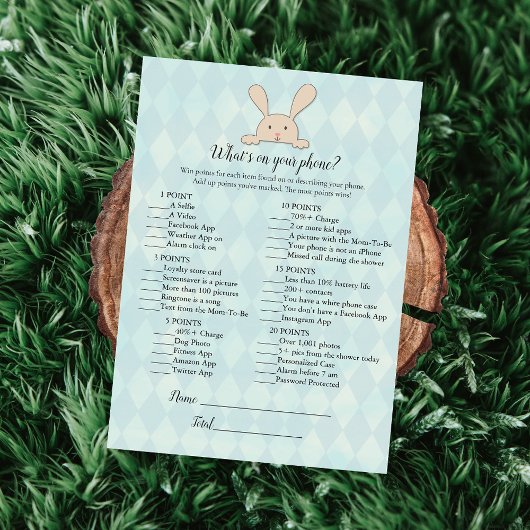 What's on your phone?
Win points for each item found on or describing your phone.
Add up points you've marked. The most points wins!
1 POINT
_____A Selfie
_____A Video
_____Facebook App
_____Weather App on
_____Alarm clock on
3 POINTS
_____Loyalty score card
_____Screensaver is a picture
_____More than 100 pictures
_____Ringtone is a song
_____Text from the Mom-To-Be
5 POINTS
_____40%+ Charge
_____Dog Photo
_____Fitness App
_____Amazon App
_____Twitter App
10 POINTS
_____70%+ Charge
_____2 or more kid apps
_____A picture with the Mom-To-Be
_____Your phone is not an iPhone
_____Missed call during the shower
15 POINTS
_____Less than 10% battery life
_____200+ contacts
_____You have a white phone case
_____You don't have a Facebook App
_____Instagram App
20 POINTS
_____Over 1,001 photos
_____5+ pics from the shower today
_____Personalized Case
_____Alarm before 7 am
_____Password Protected
Name____________________
Total_______________